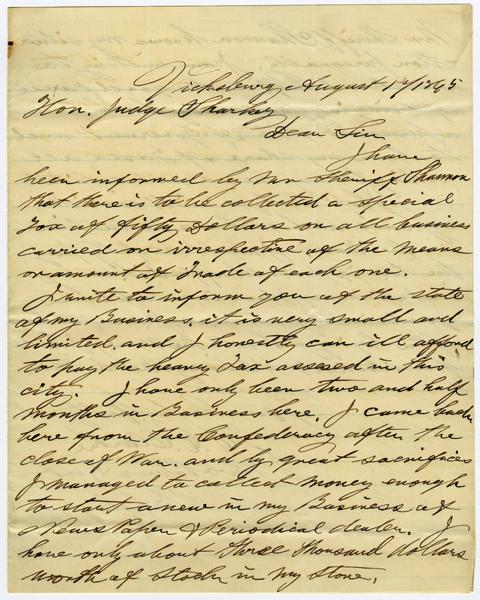 Vicksburg August 1st/1865
Hon. Judge Sharkey
Dear Sir
I have
been informed by Mr Sheriff Shannon
that there is to be collected a special
Tax of fifty Dollars on all business
carried on irrespective of the means
or amount of Trade of each one.
I write to inform you of the state
of my Business. it is very small and
limited. and I honestly can ill afford
to pay the heavy Tax assesed in this
city. I have only been two and half
months in Business here. I came back
here from the Confederacy after the
close of War. and by great sacrifices
I managed to collect money enough
to start anew in my Business of
News Paper & Periodical dealer. I
have only about three thousand dollars
worth of stock in my store.